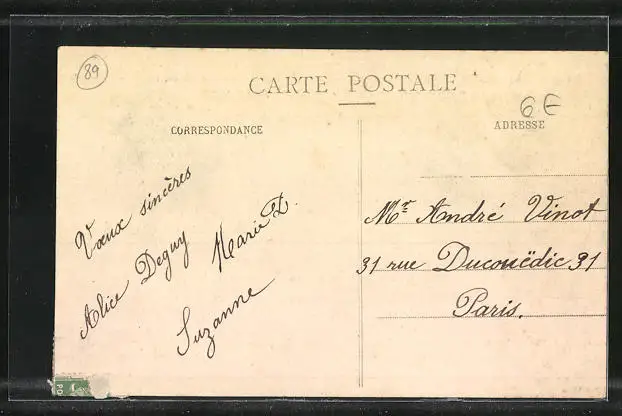 89
CARTE POSTALE
6E
CORRESPONDANCE
ADRESSE
Vœux sincères
Alice Deguy Marie D.
Suzanne
Mr André Vinot
31 rue Ducouëdic 31
Paris.
PO